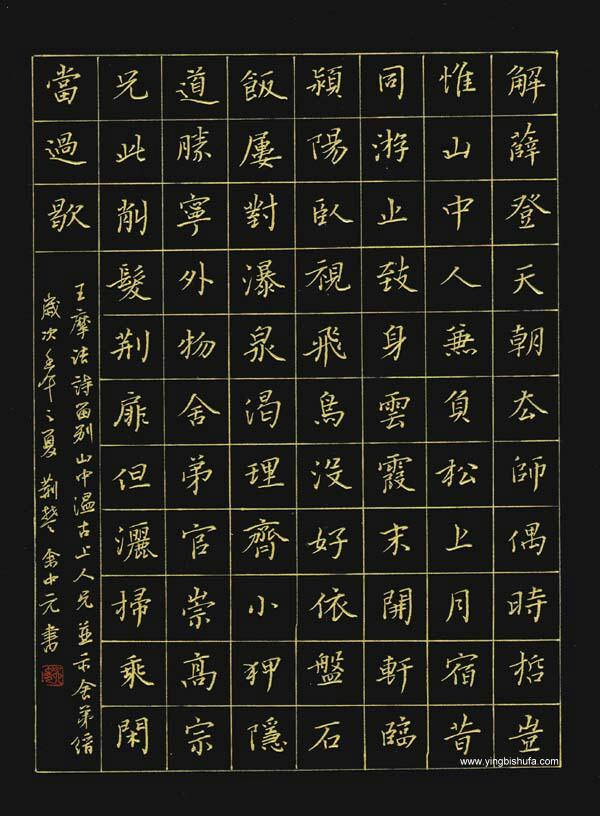 解薜登天朝去師偶時哲豈
惟山中人兼負松上月宿昔
同游止致身雲霞末開軒臨
潁陽臥視飛鳥没好依盤石
飯屢對瀑泉渴理齊小狎隱
道勝寧外物舍弟官崇高宗
兄此削髮荆扉但灑掃乘閑
當過歇
王摩诘詩留别山中温古上人兄並示舍弟缙
歲次壬午之夏 荆楚 余中元書
www.yingbishufa.com